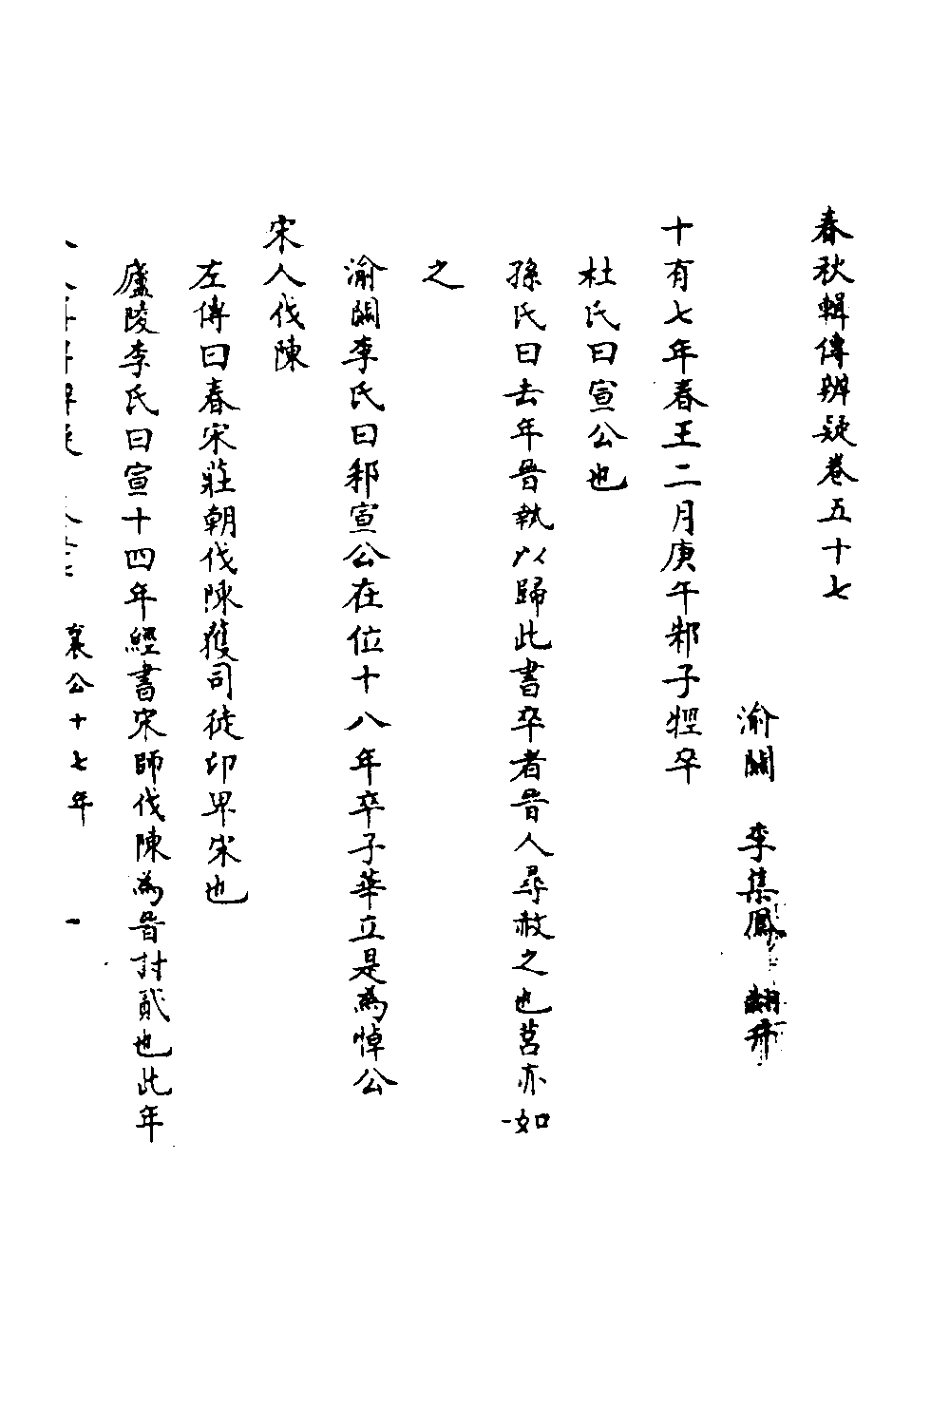 春秋輯傳辨疑卷五十七
渝關 李集鳳 翽升
十有七年春王二月庚午邾子牼卒
杜氏曰宣公也
孫氏曰去年晉執以歸此書卒者晉人尋赦之也莒亦如
之
渝關李氏曰邾宣公在位十八年卒子華立是為悼公
宋人伐陳
左傳曰春宋莊朝伐陳獲司徒卬卑宋也
廬陵李氏曰宣十四年經書宋師伐陳為晉討貳也此年
襄公十七年 一